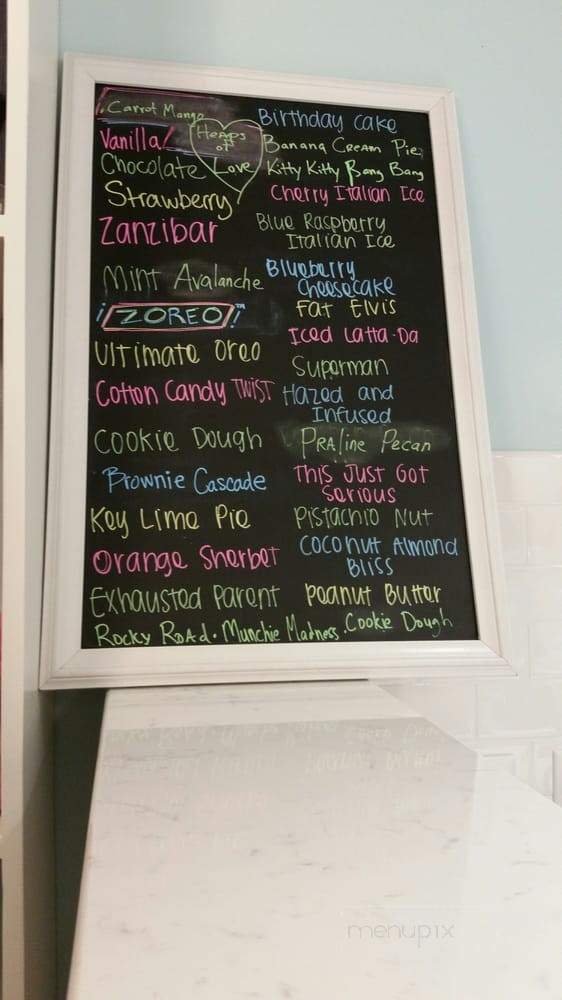 Carrot Mango
Vanilla!
Heaps
of
Love
Chocolate
Strawberry
Zanzibar
Mint Avalanche
¡ZOREO!™
Ultimate Oreo
Cotton Candy TWIST
Cookie Dough
Brownie Cascade
Key Lime Pie
Orange Sherbet
Exhausted Parent
Rocky Road • Munchie Madness •
Birthday Cake
Banana Cream Pie
Kitty Kitty Bang Bang
Cherry Italian Ice
Blue Raspberry
Italian Ice
Blueberry
Cheesecake
Fat Elvis
Iced Latta-Da
Superman
Hazed and
Infused
Praline Pecan
This Just Got
Serious
Pistachio Nut
Coconut Almond
Bliss
Peanut Butter
Cookie Dough
menupix